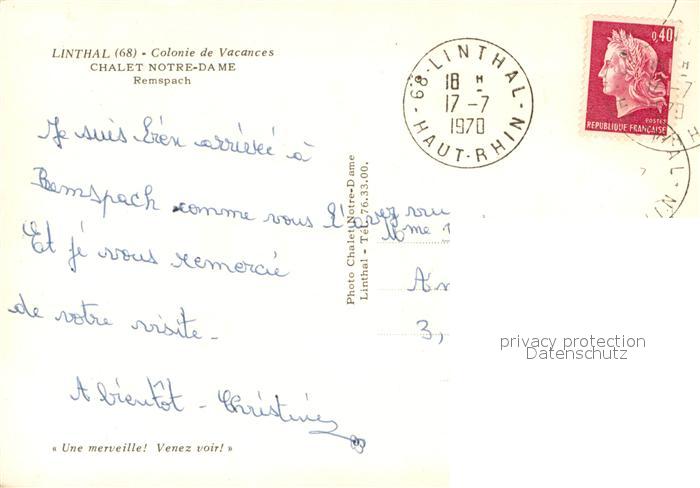 LINTHAL (68) - Colonie de Vacances
CHALET NOTRE-DAME
Remspach
68-LINTHAL-
18 H
17-7
1970
HAUT-RHIN
0,40
POSTES
REPUBLIQUE FRANÇAISE
Je suis bien arrivée à
Remspach comme vous l'avez vue
Et je vous remercie
de votre visite.
A bientôt - Christine
« Une merveille! Venez voir! »
Photo Chalet Notre-Dame
Linthal - Tél. 76.33.00.
Mme
3,
privacy protection
Datenschutz